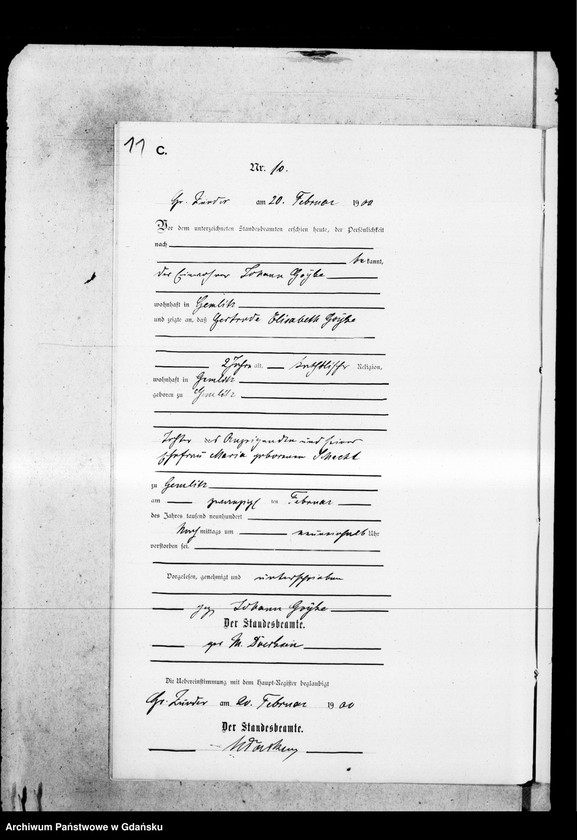 11
C.
Nr. 10.
Gr. Zünder am 20. Februar 1900
Vor dem unterzeichneten Standesbeamten erschien heute, der Persönlichkeit
nach
bekannt,
der Einwohner Johann
wohnhaft in Gemlitz
und zeigte an, daß Gertrude Elisabeth
2 Jahre alt, katholischer Religion,
wohnhaft in Gemlitz
geboren zu Gemlitz
Tochter des Anzeigenden und seiner
Ehefrau Maria geborenen Schecht
zu Gemlitz
am ten Februar
des Jahres tausend neunhundert
Nachmittags um Uhr
verstorben sei.
Vorgelesen, genehmigt und unterschrieben
gez. Johann
Der Standesbeamte.
gez. M.
Die Uebereinstimmung mit dem Haupt-Register beglaubigt
Gr. Zünder am 20. Februar 1900
Der Standesbeamte.
Archiwum Państwowe w Gdańsku